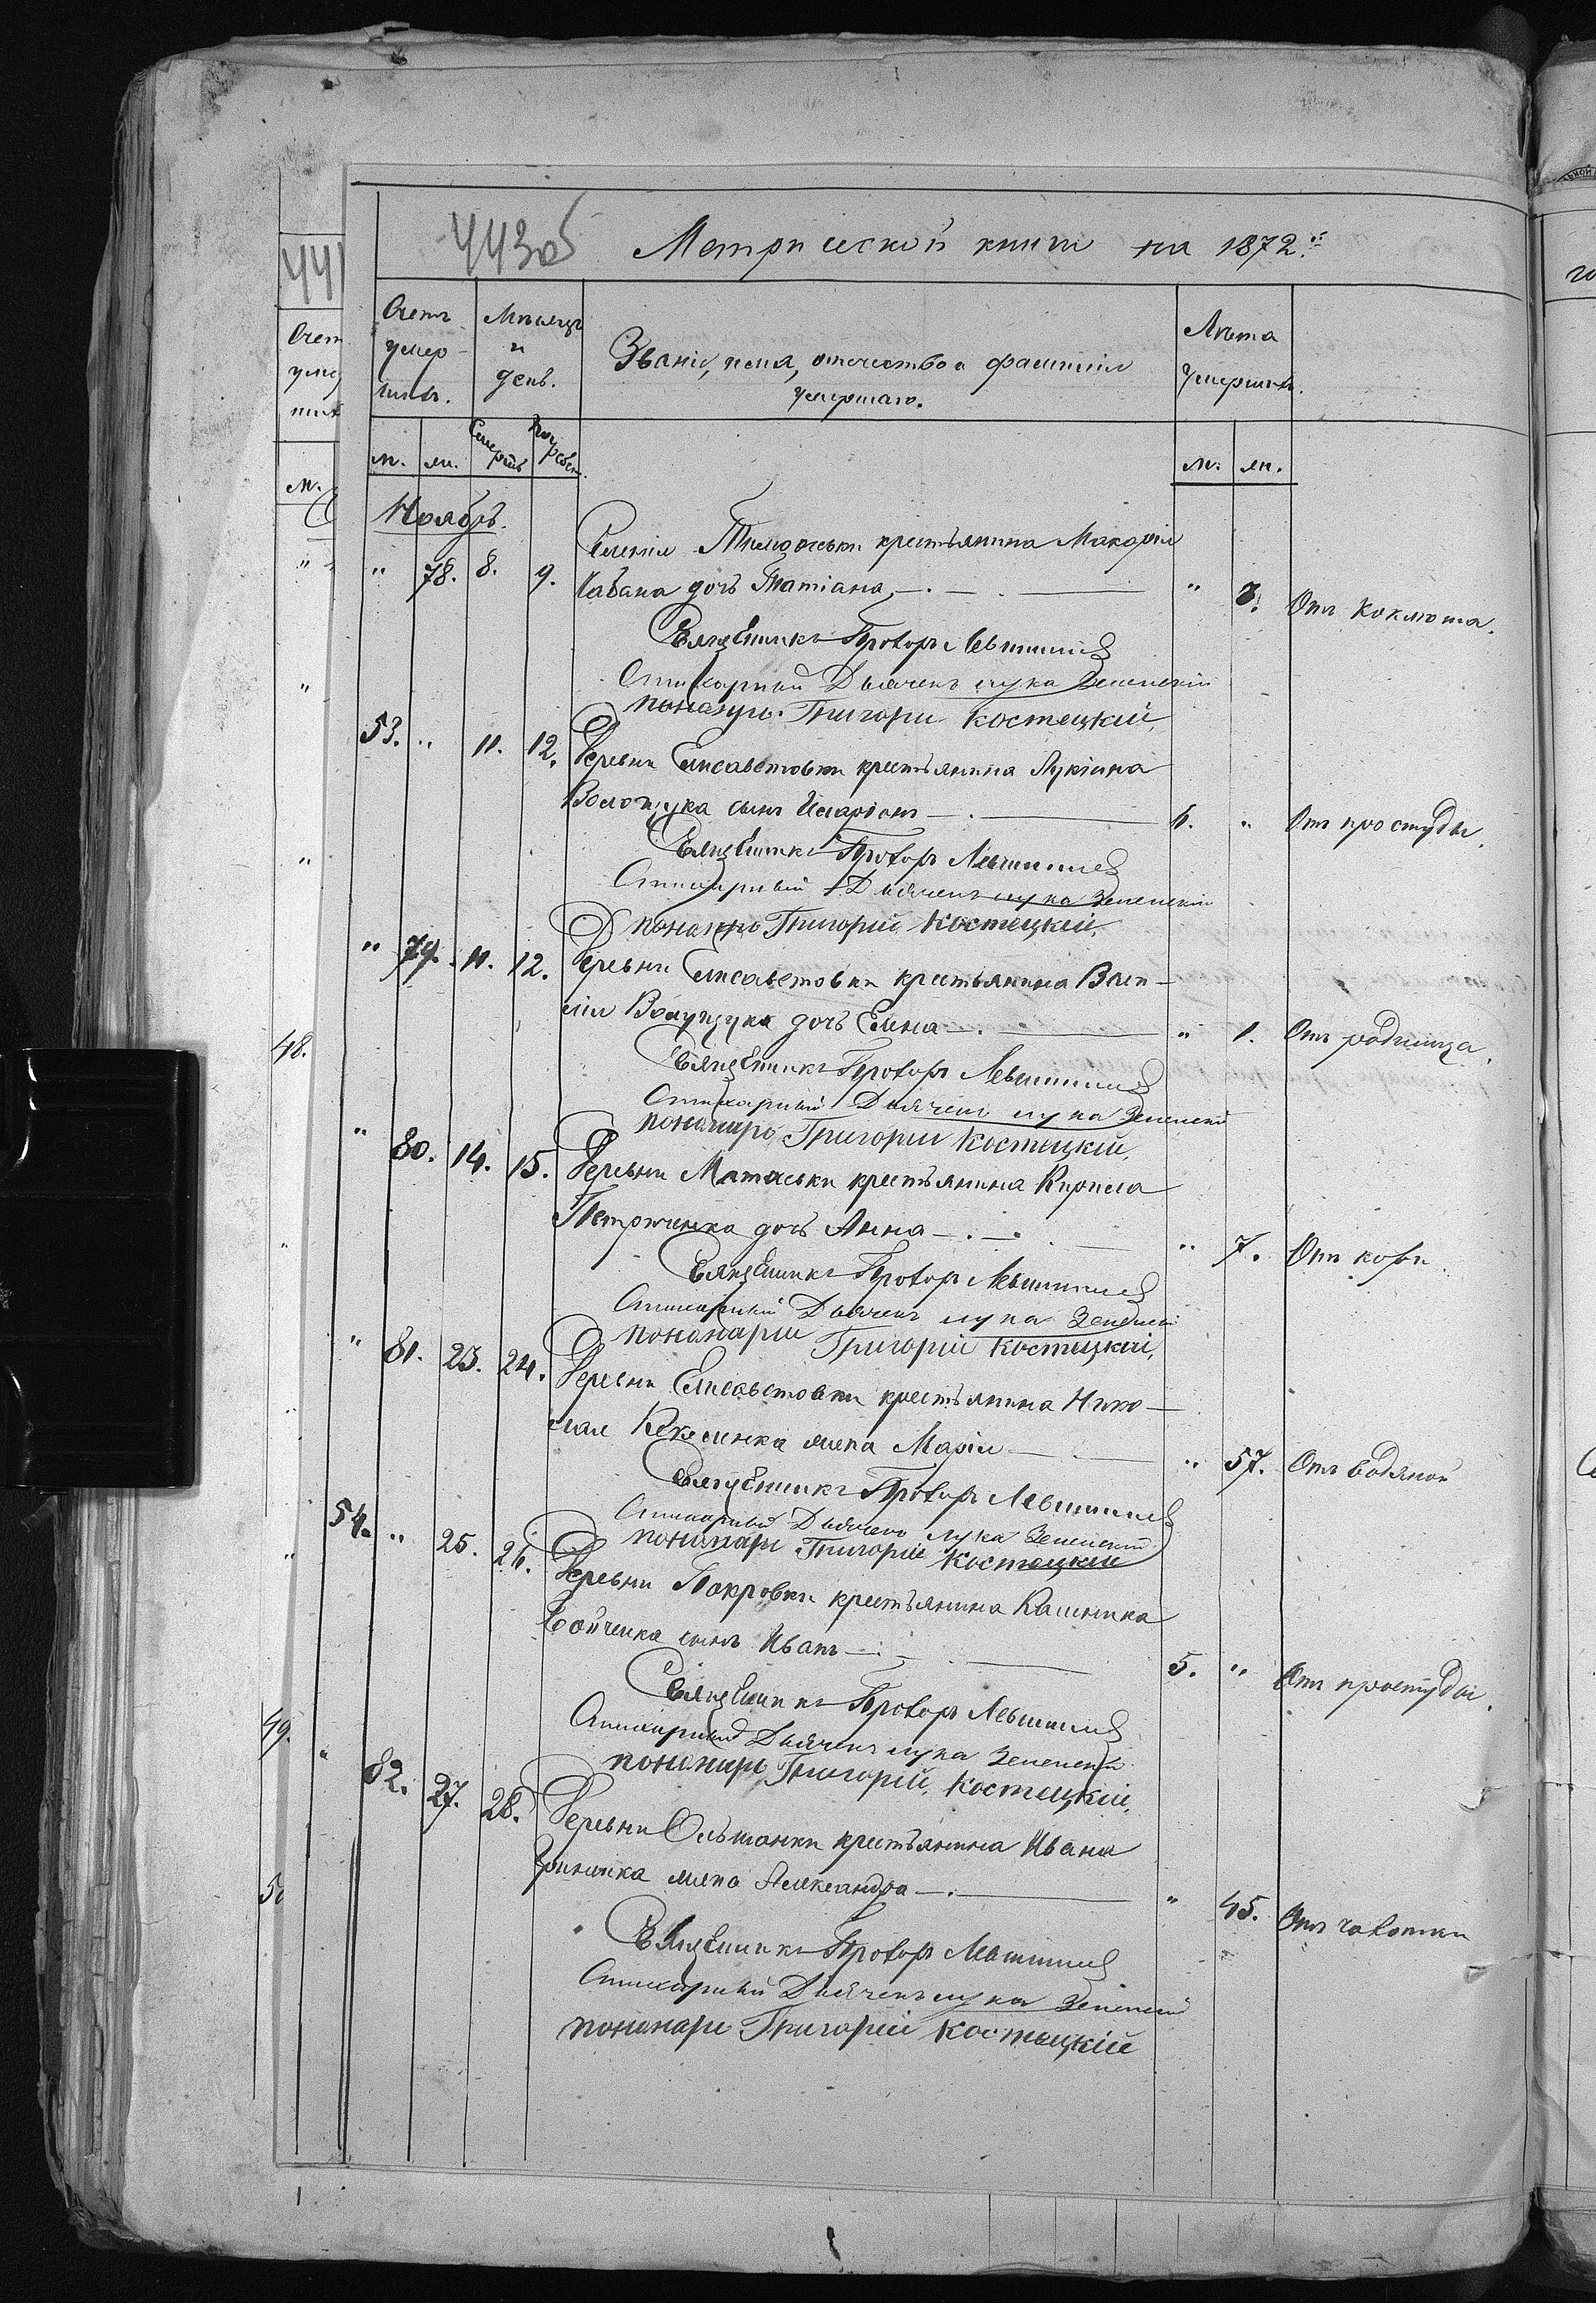 443об
Метрической книги на 1872.й
Счетъ умер-шихъ.
Мѣсяцъ и день.
Званіе, имя, отчество и фамилія умершаго.
Лѣта умершихъ.
м. ж. Смерть Погребен. м. ж.
Ноябрь.
" 78. 8. 9. Селенія крестьянина Макарія
Кабана дочь Татіана " 3. Отъ коклюша.
Священникъ Прохоръ
Стихарный Дьячекъ Лука Зеленскій
пономарь Григорій Костецкій.
53. " 11. 12. Деревни Елисаветовки крестьянина Лукіана
сынъ Иларіонъ 6. " Отъ простуды.
Священникъ Прохоръ
Стихарный Дьячекъ Лука Зеленскій
пономарь Григорій Костецкій.
" 79. 11. 12. Деревни Елисаветовки крестьянина Васи-
лія дочь Елена " 1. Отъ родимца.
Священникъ Прохоръ
Стихарный Дьячекъ Лука Зеленскій
пономарь Григорій Костецкій.
" 80. 14. 15. Деревни крестьянина Кирила
Петриченка дочь Анна " 7. Отъ кори.
Священникъ Прохоръ
Стихарный Дьячекъ Лука Зеленскій
пономарь Григорій Костецкій.
" 81. 23. 24. Деревни Елисаветовки крестьянина Нико-
лая жена Марія " 57. Отъ водяной
Священникъ Прохоръ
Стихарный Дьячекъ Лука Зеленскій
пономарь Григорій Костецкій
54. " 25. 26. Деревни Покровки крестьянина Калиника
Бойченка сынъ Иванъ 5. " Отъ простуды.
Священникъ Прохоръ
Стихарный Дьячекъ Лука Зеленскій
пономарь Григорій Костецкій.
" 82. 27. 28. Деревни Ольшанки крестьянина Ивана
жена Александра " 45. Отъ чахотки
Священникъ Прохоръ
Стихарный Дьячекъ Лука Зеленскій
пономарь Григорій Костецкій